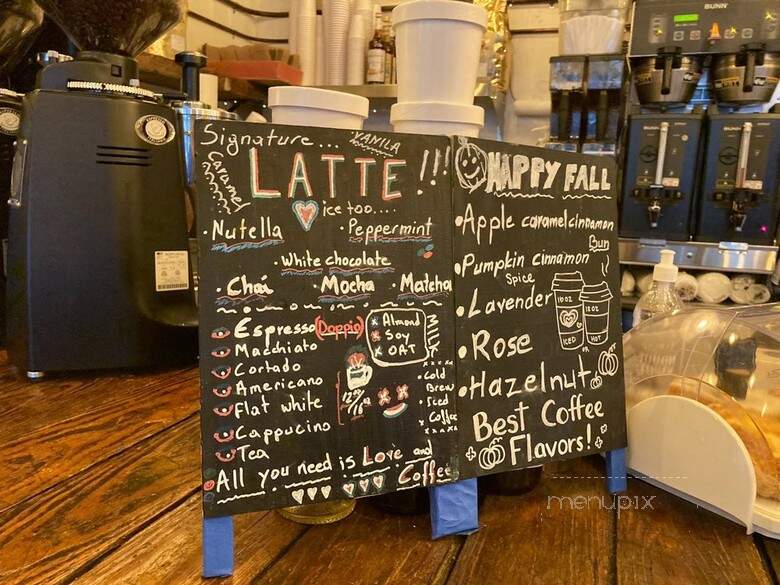 Signature... VANILA
Caramel
LATTE!!!
ice too....
• Nutella • Peppermint
• White chocolate
• Chai • Mocha • Matcha
Espresso (Doppio)
Macchiato
Cortado
Americano
Flat white
Cappucino
Tea
x Almond
x Soy
x OAT
MILK
• Cold
Brew
• Iced
• Coffee
• All you need is Love and
Coffee
HAPPY FALL
• Apple caramel cinnamon
Bun
• Pumpkin cinnamon
Spice
• Lavender
• Rose
• Hazelnut
16 oz
ICED
10 oz
HOT
OR
Best Coffee
Flavors!
BUNN
BUNN
BUNN
menupix